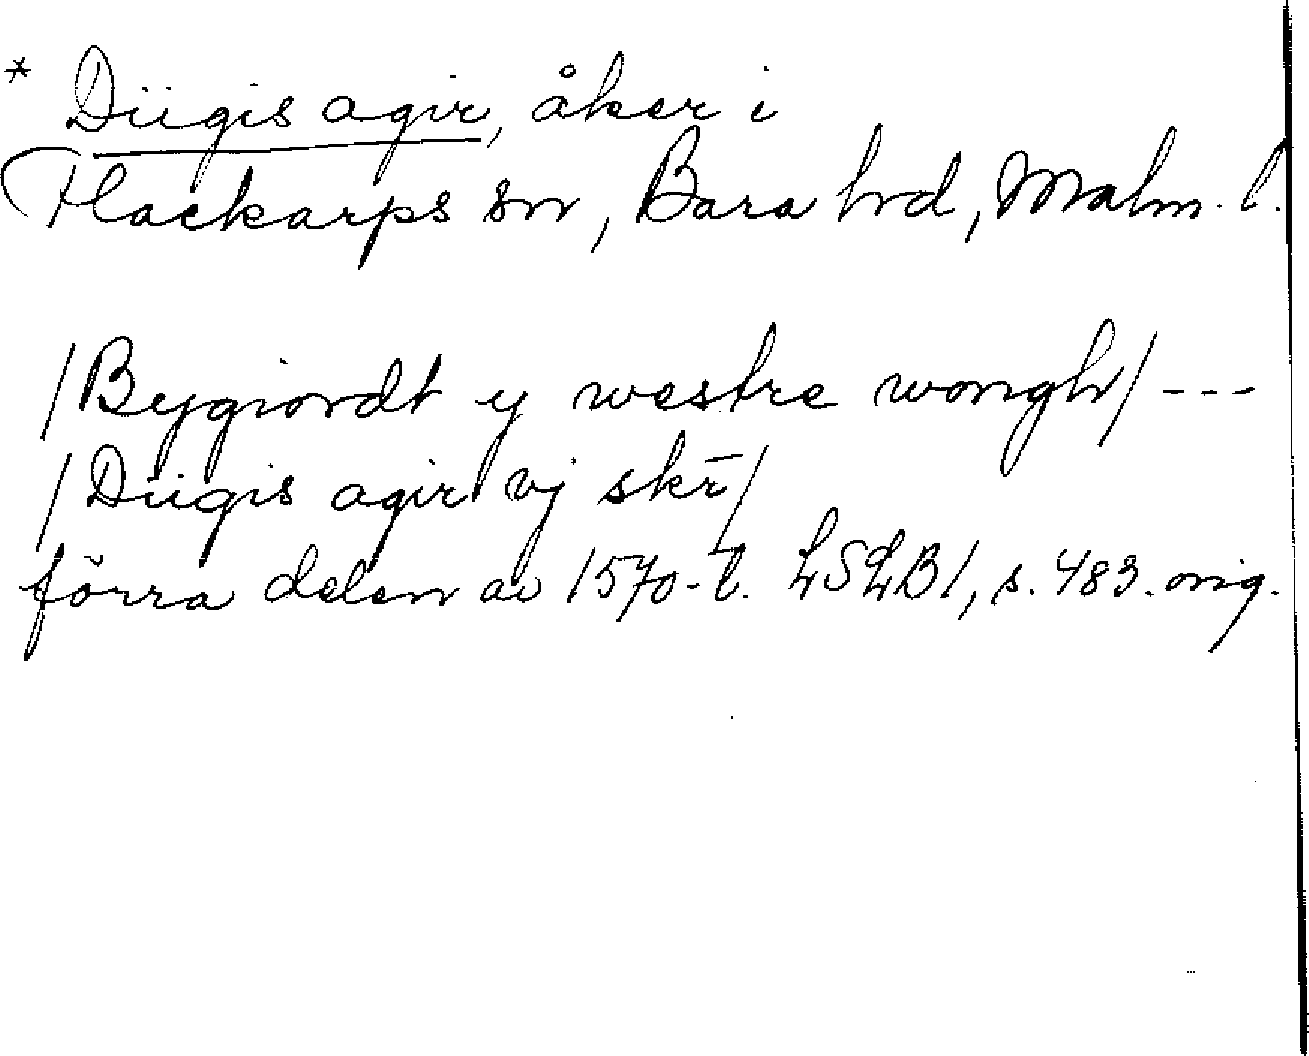 * Diigis agir, åker i
Flackarps sn, Bara hd, Malm. l.
/Bygiordt y westre wongh/ ---
/Diigis agir vj skr̄/
förra delen av 1570-t. LSLB1, s. 483. orig.